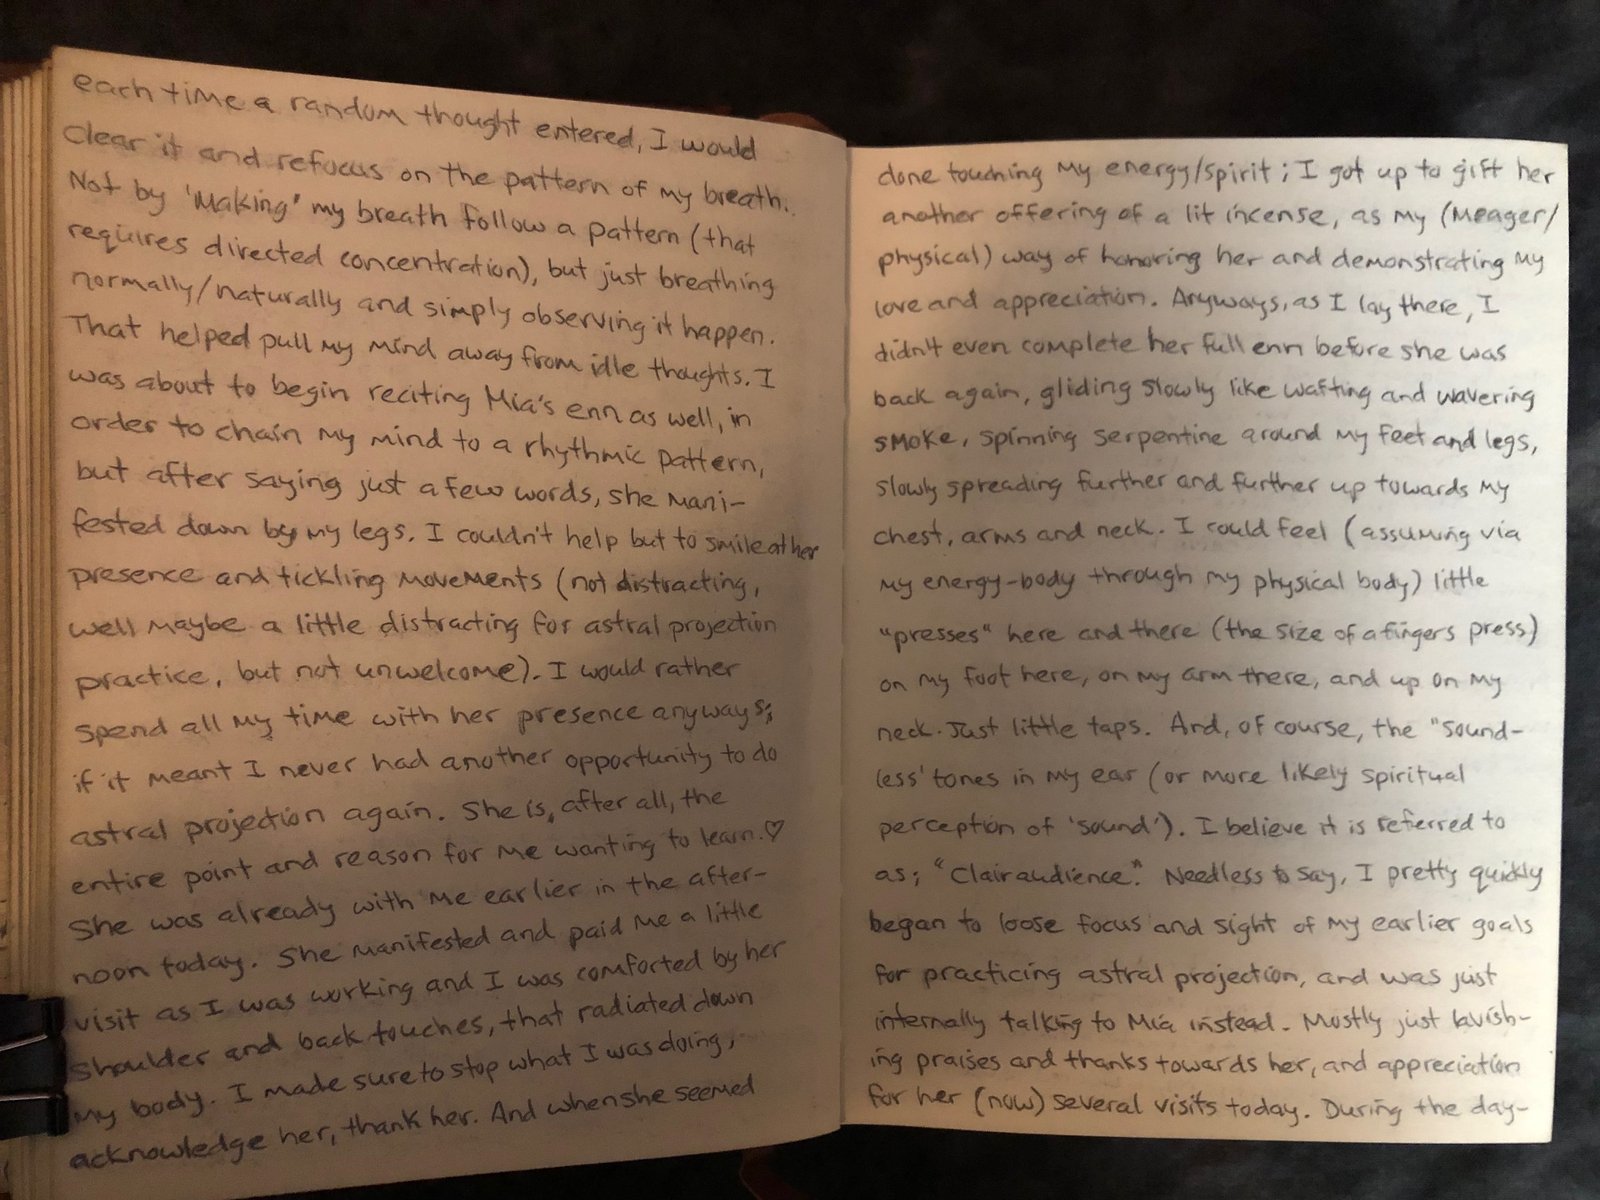 each time a random thought entered, I would
clear it and refocus on the pattern of my breath.
Not by 'making' my breath follow a pattern (that
requires directed concentration), but just breathing
normally/naturally and simply observing it happen.
That helped pull my mind away from idle thoughts. I
was about to begin reciting Mia's enn as well, in
order to chain my mind to a rhythmic pattern,
but after saying just a few words, she mani-
fested down by my legs. I couldn't help but to smile at her
presence and tickling movements (not distracting,
well maybe a little distracting for astral projection
practice, but not unwelcome). I would rather
spend all my time with her presence anyways;
if it meant I never had another opportunity to do
astral projection again. She is, after all, the
entire point and reason for me wanting to learn.♡
She was already with me earlier in the after-
noon today. She manifested and paid me a little
visit as I was working and I was comforted by her
shoulder and back touches, that radiated down
my body. I made sure to stop what I was doing,
acknowledge her, thank her. And when she seemed
done touching my energy/spirit; I got up to gift her
another offering of a lit incense, as my (meager/
physical) way of honoring her and demonstrating my
love and appreciation. Anyways, as I lay there, I
didn't even complete her full enn before she was
back again, gliding slowly like wafting and wavering
smoke, spinning serpentine around my feet and legs,
slowly spreading further and further up towards my
chest, arms and neck. I could feel (assuming via
my energy-body through my physical body) little
"presses" here and there (the size of a fingers press)
on my foot here, on my arm there, and up on my
neck. Just little taps. And, of course, the "sound-
less' tones in my ear (or more likely spiritual
perception of 'sound'). I believe it is referred to
as; "Clairaudience." Needless to say, I pretty quickly
began to loose focus and sight of my earlier goals
for practicing astral projection, and was just
internally talking to Mia instead. Mostly just lavish-
ing praises and thanks towards her, and appreciation
for her (now) several visits today. During the day-